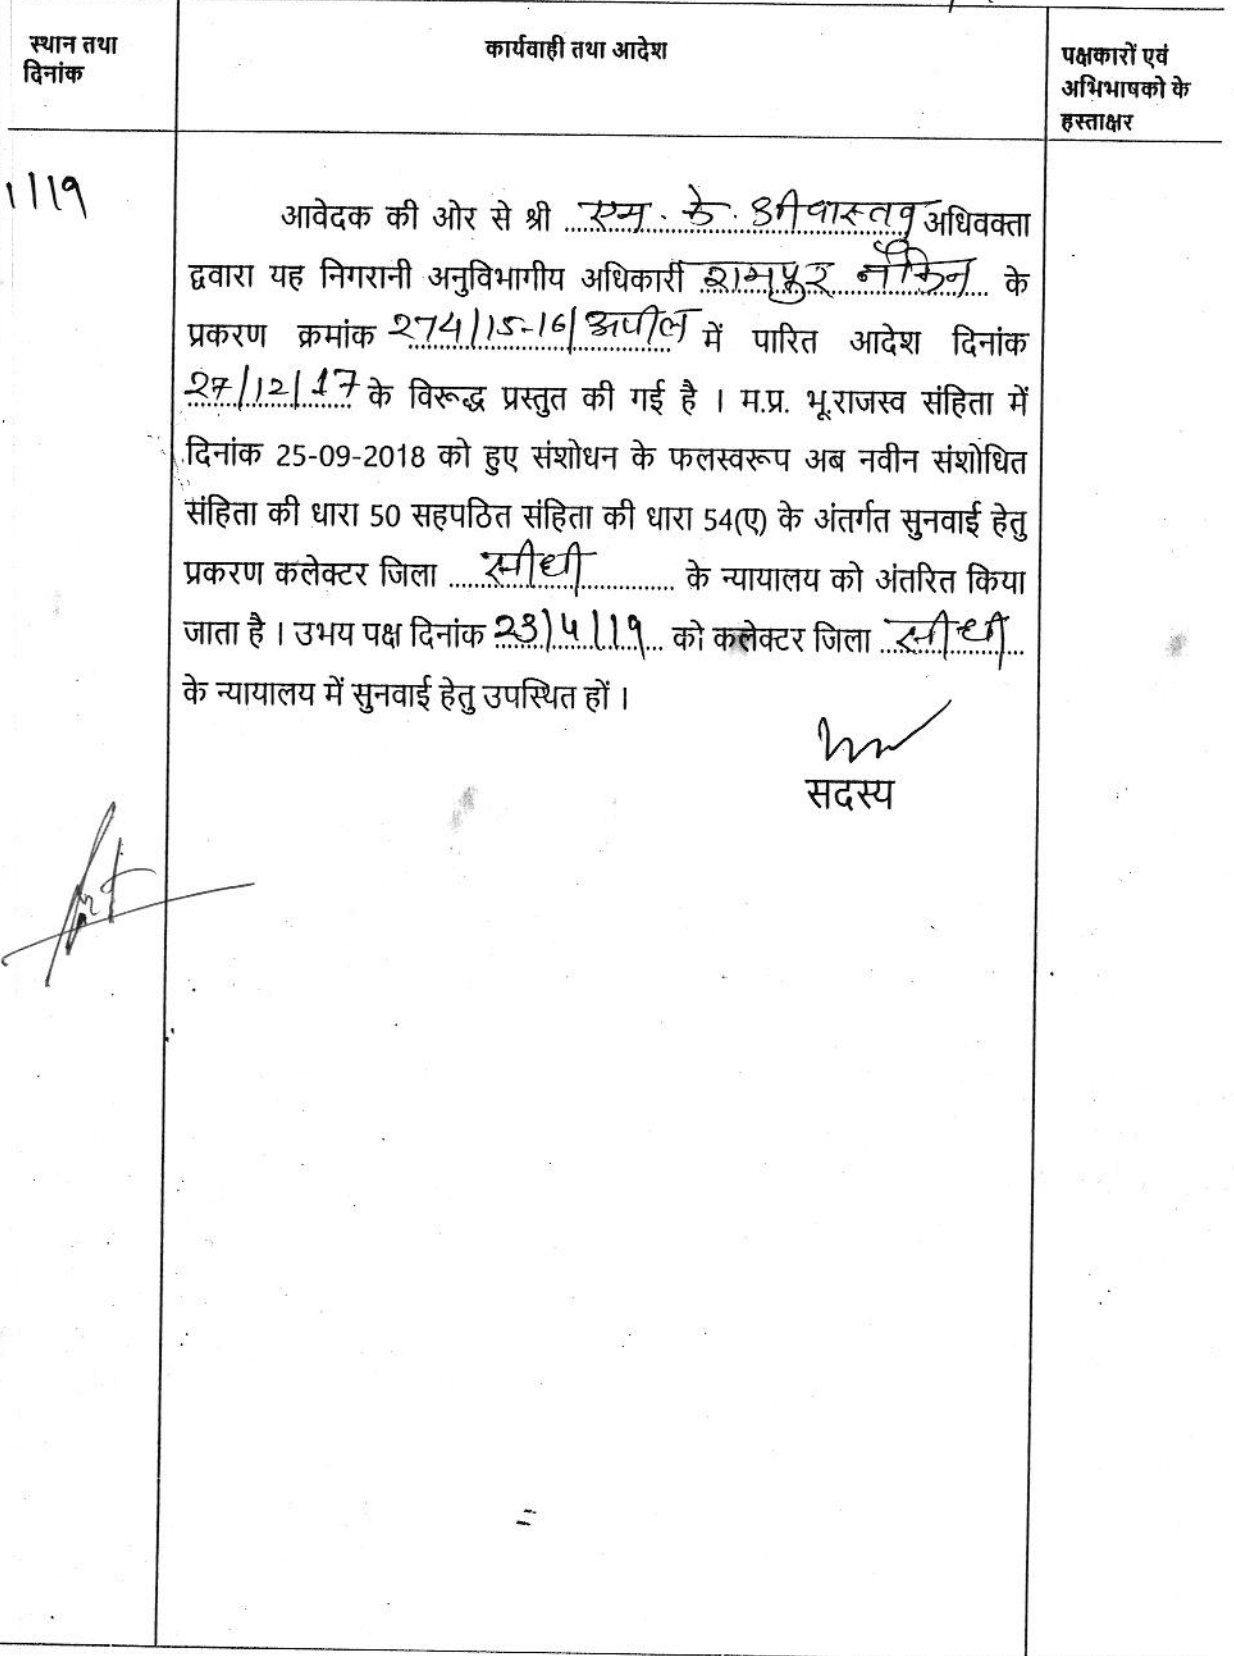 स्थान तथा
दिनांक
कार्यवाही तथा आदेश
पक्षकारों एवं
अभिभाषको के
हस्ताक्षर
1/19
आवेदक की ओर से श्री एम. के. श्रीवास्तव अधिवक्ता
द्ववारा यह निगरानी अनुविभागीय अधिकारी रामपुर नैकिन के
प्रकरण क्रमांक 274/15-16/अपील में पारित आदेश दिनांक
27/12/17 के विरूद्ध प्रस्तुत की गई है । म.प्र. भू.राजस्व संहिता में
दिनांक 25-09-2018 को हुए संशोधन के फलस्वरूप अब नवीन संशोधित
संहिता की धारा 50 सहपठित संहिता की धारा 54(ए) के अंतर्गत सुनवाई हेतु
प्रकरण कलेक्टर जिला सीधी के न्यायालय को अंतरित किया
जाता है । उभय पक्ष दिनांक 23/4/19 को कलेक्टर जिला सीधी
के न्यायालय में सुनवाई हेतु उपस्थित हों ।
सदस्य